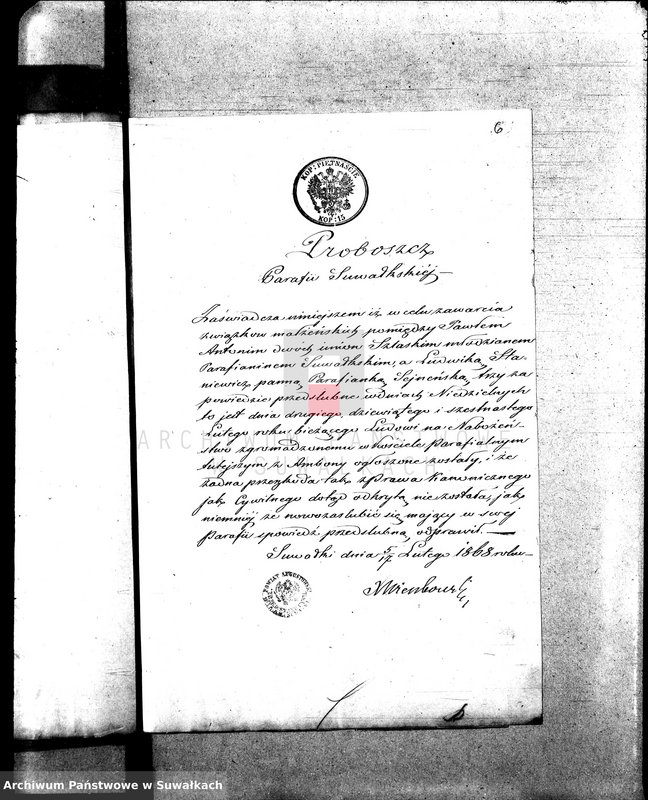 6
KOP: PIĘTNAŚCIE
KOP: 15
Proboszcz
Parafii Suwałkskiéj
Zaświadcza niniejszem iż w celu zawarcia
związków małżeńskich pomiędzy Pawłem
Antonim dwóch imion Szłaskim młodzianem
Parafianinem Suwałkskim, a Ludwiką Sta-
niewicz panną Parafianką Sejneńską, trzy za
powiedzie przedślubne w dniach Niedzielnych
to jest dnia drugiego, dziewiątego i szesnastego
Lutego roku bieżącego Ludowi na Nabożeń-
stwo zgromadzonemu w kościele Parafialnym
tutejszym z Ambony ogłoszone zostały, i że
żadna przeszkoda tak z prawa Kanonicznego
jak Cywilnego dotąd odkrytą nie została, jak
niemniéj że nowozaślubić się mający w swéj
Parafii spowiedź przedślubną odprawił.
Suwałki dnia 5/17 Lutego 1868 roku
ARCHIWUM PAŃSTWOWE
SUWAŁKACH
Archiwum Państwowe w Suwałkach